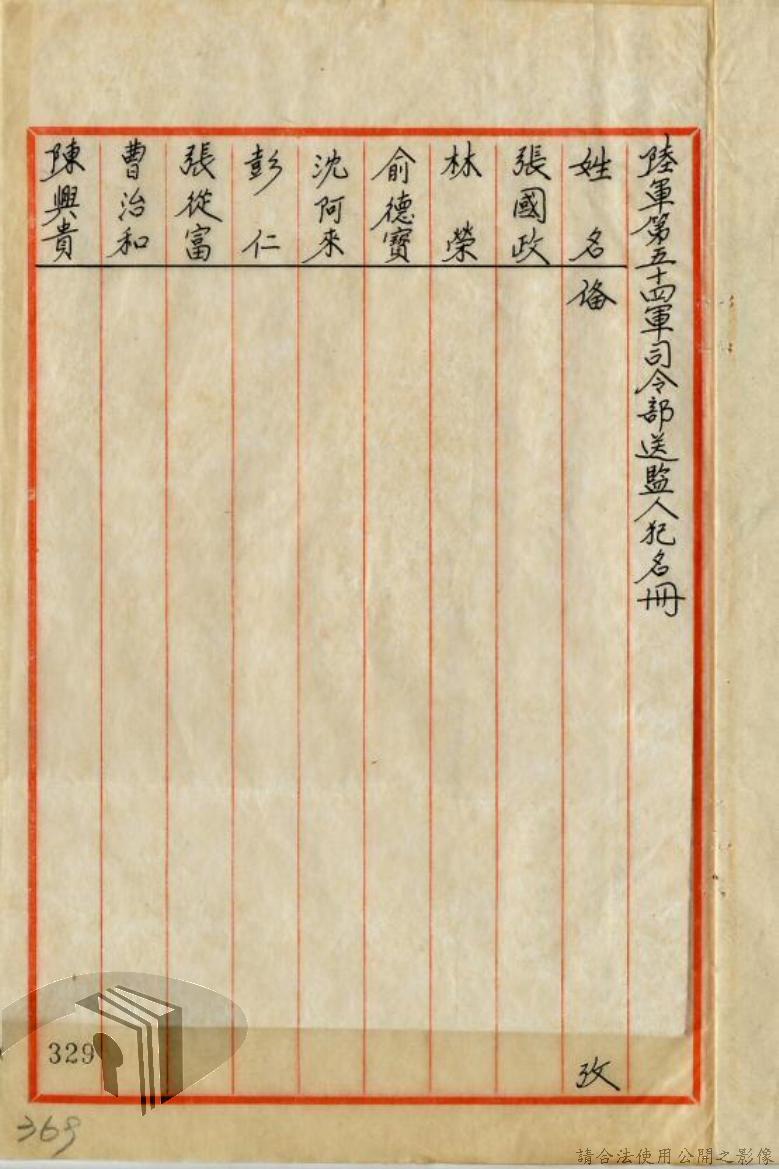 陸軍第五十四軍司令部送監人犯名冊
姓名 俻 攷
張國政
林榮
俞德寶
沈阿來
彭仁
張從富
曹治和
陳興貴
329
369
請合法使用公開之影像